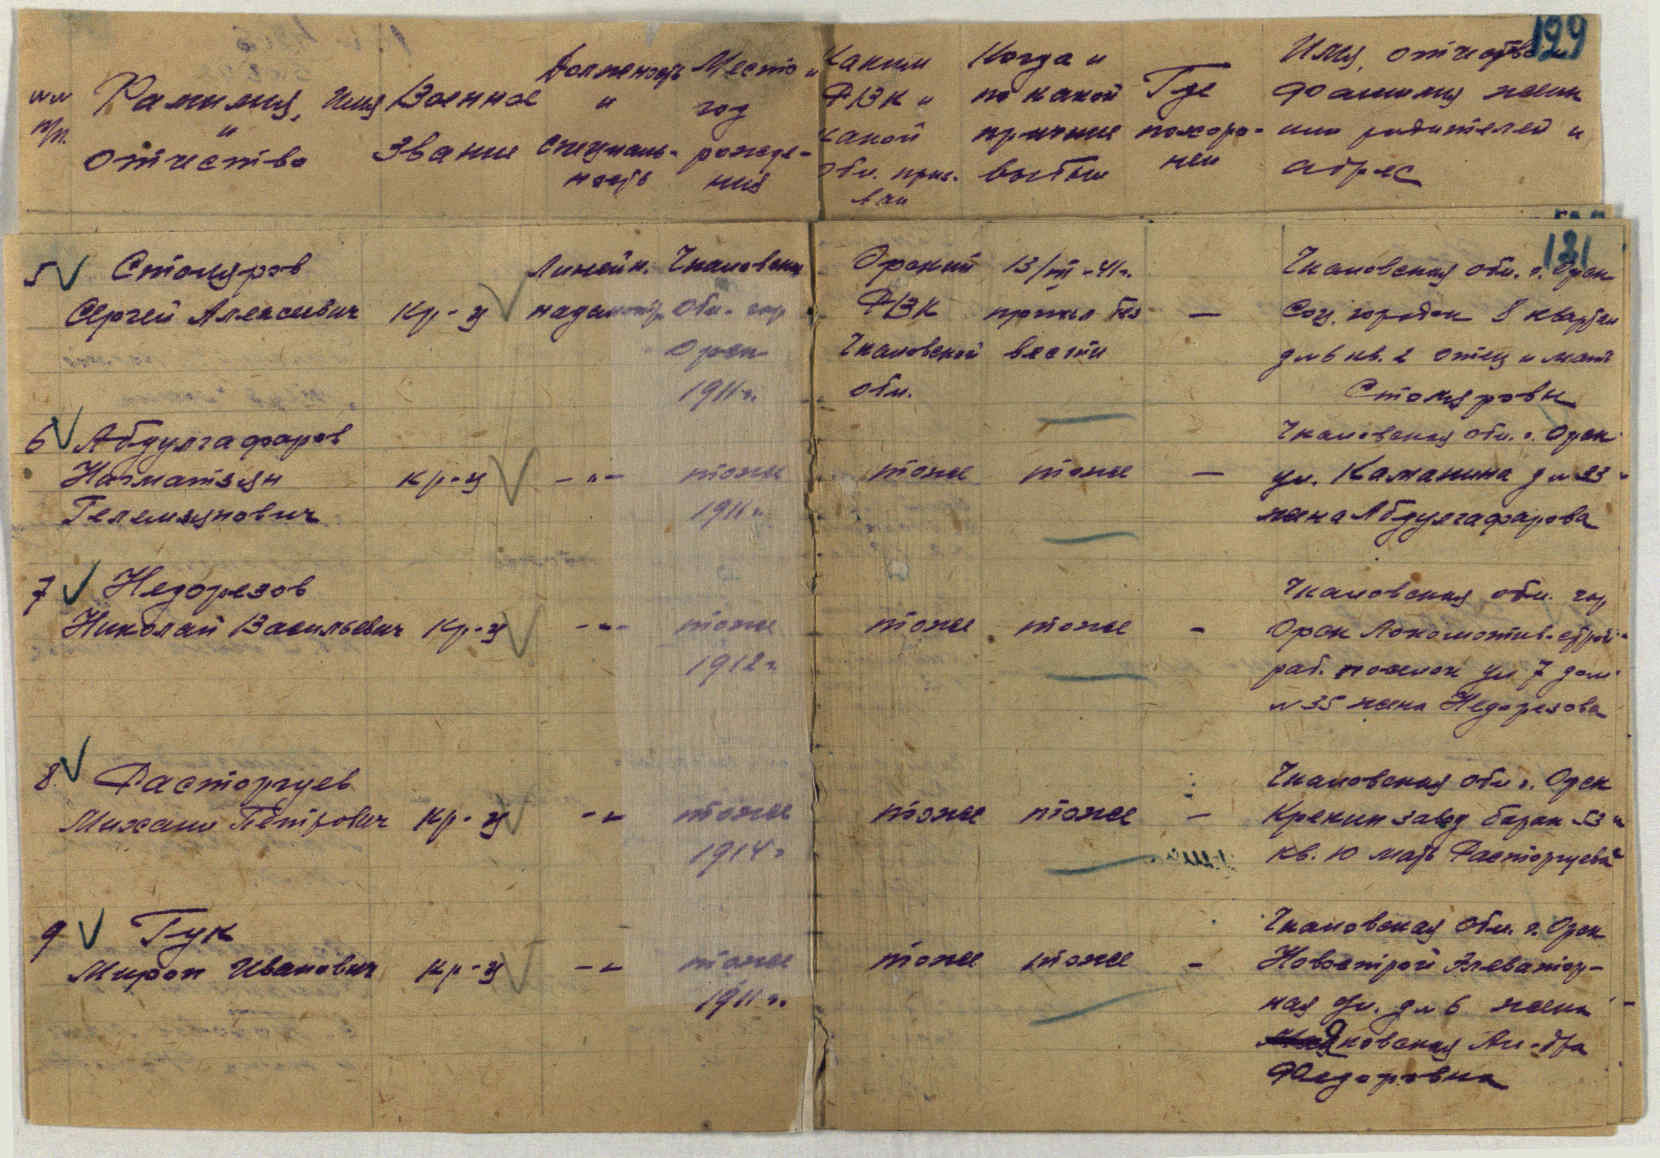 129
№№ п/п.
Фамилия, имя и отчество
Военное звание
Должность и специальность
Место и год рождения
Каким РВК и какой обл. призван
Когда и по какой причине выбыл
Где похоронен
Имя, отчество и фамилия жены или родителей и адрес
131
5 Столяров
Сергей Алексеевич
Кр-ц
Линейн. надсмотр.
Чкаловская
обл. гор
Орск
1911г.
Орский
РВК
Чкаловской
обл.
13/III-41г.
пропал без
вести
—
Чкаловская обл. г. Орск
Соц. городок 8 квартал
д №6 кв. 2 отец и мать
Столяровы
6 Абдулгафаров
Нагматзян
Гелемзянович
кр-ц
— „ —
тоже
1911г.
тоже
тоже
—
Чкаловская обл. г. Орск
ул. Каманина д №23
жена Абдулгафарова
7 Недорезов
Николай Васильевич
Кр-ц
— „ —
тоже
1912г.
тоже
тоже
—
Чкаловская обл. гор
Орск Локомотив-строй
раб. поселок ул 7 дом
№35 жена Недорезова
8. Расторгуев
Михаил Петрович
Кр-ц
— „ —
тоже
1914г
тоже
тоже
—
Чкаловская обл г. Орск
Крекинг завод барак 53
кв. 10 мать Расторгуева
9 Гук
Мирон Иванович
кр-ц
— „ —
тоже
1911г.
тоже
тоже
—
Чкаловская обл. г. Орск
Новострой Элеватор-
ная ул. д №6 жена
Федоровна